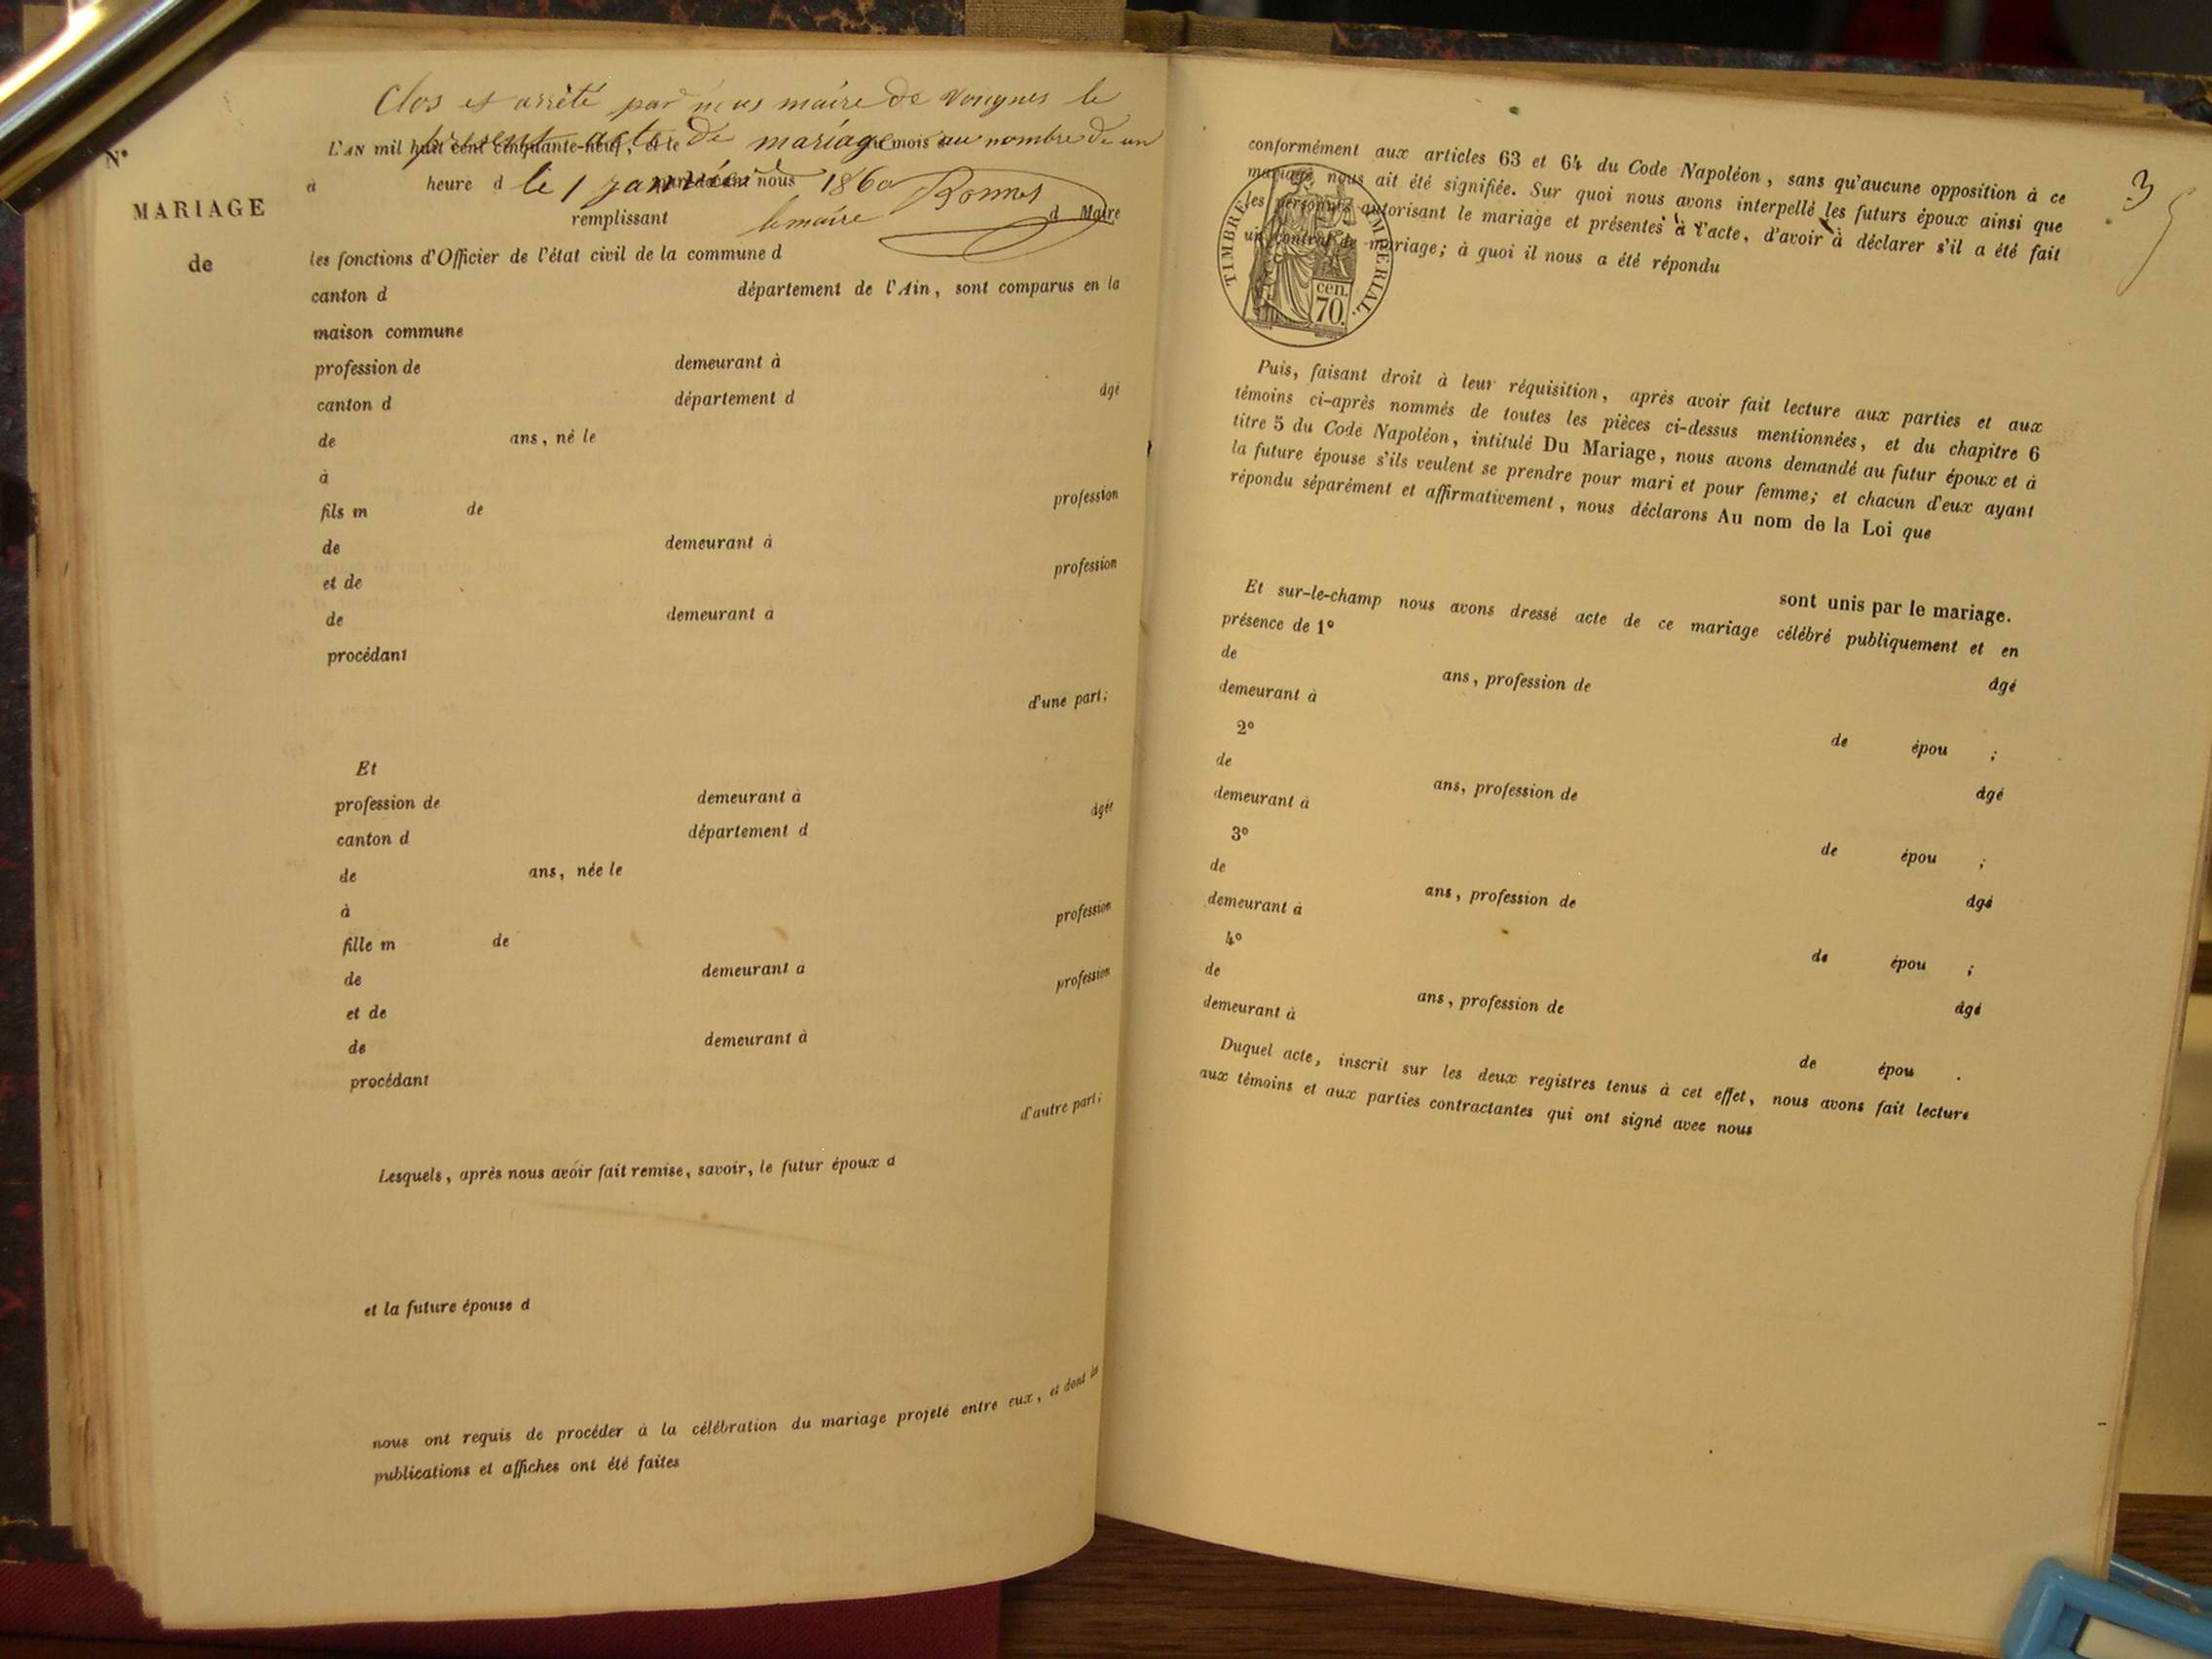 Clos et arrèté par nous maire de Vongnes le
présent acte de mariage au nombre de un
le 1 janvier 1860 Bonnet
le maire
N°
MARIAGE
de
L'AN mil huit cent cinquante-neuf, et le du mois d
à heure d par-devant nous
remplissant d Maire
les fonctions d'Officier de l'état civil de la commune d
canton d département de l'Ain, sont comparus en la
maison commune
profession de demeurant à
canton d département d âgé
de ans, né le
à
fils m de profession
de demeurant à
et de profession
de demeurant à
procédant
d'une part;
Et
profession de demeurant à
canton d département d âgée
de ans, née le
à
fille m de profession
de demeurant à
et de profession
de demeurant à
procédant
d'autre part;
Lesquels, après nous avoir fait remise, savoir, le futur époux d
et la future épouse d
nous ont requis de procéder à la célébration du mariage projeté entre eux, et dont les
publications et affiches ont été faites
3
conformément aux articles 63 et 64 du Code Napoléon, sans qu'aucune opposition à ce
mariage nous ait été signifiée. Sur quoi nous avons interpellé les futurs époux ainsi que
les personnes autorisant le mariage et présentes à l'acte, d'avoir à déclarer s'il a été fait
un contrat de mariage; à quoi il nous a été répondu
TIMBRE IMPERIAL.
cen.
70.
Puis, faisant droit à leur réquisition, après avoir fait lecture aux parties et aux
témoins ci-après nommés de toutes les pièces ci-dessus mentionnées, et du chapitre 6
titre 5 du Code Napoléon, intitulé Du Mariage, nous avons demandé au futur époux et à
la future épouse s'ils veulent se prendre pour mari et pour femme; et chacun d'eux ayant
répondu séparément et affirmativement, nous déclarons Au nom de la Loi que
sont unis par le mariage.
Et sur-le-champ nous avons dressé acte de ce mariage célébré publiquement et en
présence de 1°
de ans, profession de âgé
demeurant à
2° de épou ;
de ans, profession de âgé
demeurant à
3° de épou ;
de ans, profession de âgé
demeurant à
4° de épou ;
de ans, profession de âgé
demeurant à
de épou .
Duquel acte, inscrit sur les deux registres tenus à cet effet, nous avons fait lecture
aux témoins et aux parties contractantes qui ont signé avec nous